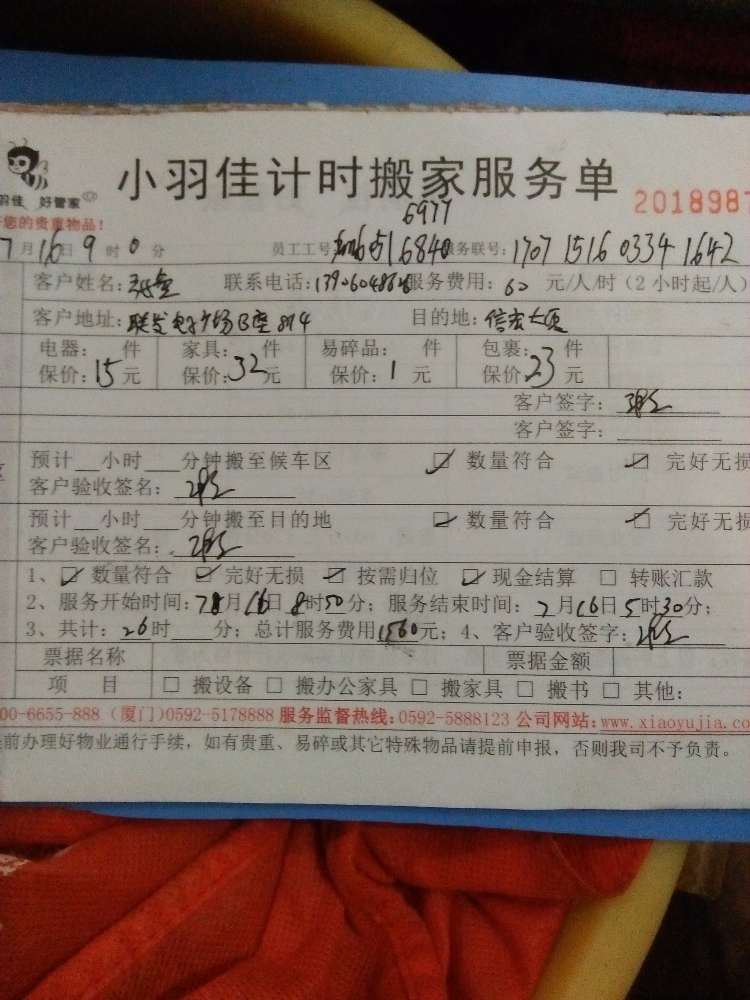 小羽佳计时搬家服务单
羽佳 好管家
您的贵重物品!
2018987
6977
7月16日9时0分 员工工号 516840 服务联号:1707 1516 0334 1642
客户姓名: 联系电话: 服务费用:60元/人/时(2小时起/人)
客户地址:联发电子广场B座814 目的地:信宏大厦
电器: 件 家具: 件 易碎品: 件 包裹: 件
保价:15元 保价:32元 保价:1元 保价:23元
客户签字:
客户签字:
预计__小时___分钟搬至候车区 ☑ 数量符合 ☑ 完好无损
客户验收签名:
预计__小时___分钟搬至目的地 ☑ 数量符合 ☑ 完好无损
客户验收签名:
1、☑ 数量符合 ☑ 完好无损 ☑ 按需归位 ☑ 现金结算 □ 转账汇款
2、服务开始时间:7月16日8时50分; 服务结束时间:7月16日5时30分;
3、共计:26时____分; 总计服务费用1560元; 4、客户验收签字:
票据名称 票据金额
项 目 □ 搬设备 □ 搬办公家具 □ 搬家具 □ 搬书 □ 其他:
00-6655-888 (厦门)0592-5178888 服务监督热线:0592-5888123 公司网站:www.xiaoyujia.co
前办理好物业通行手续,如有贵重、易碎或其它特殊物品请提前申报,否则我司不予负责。